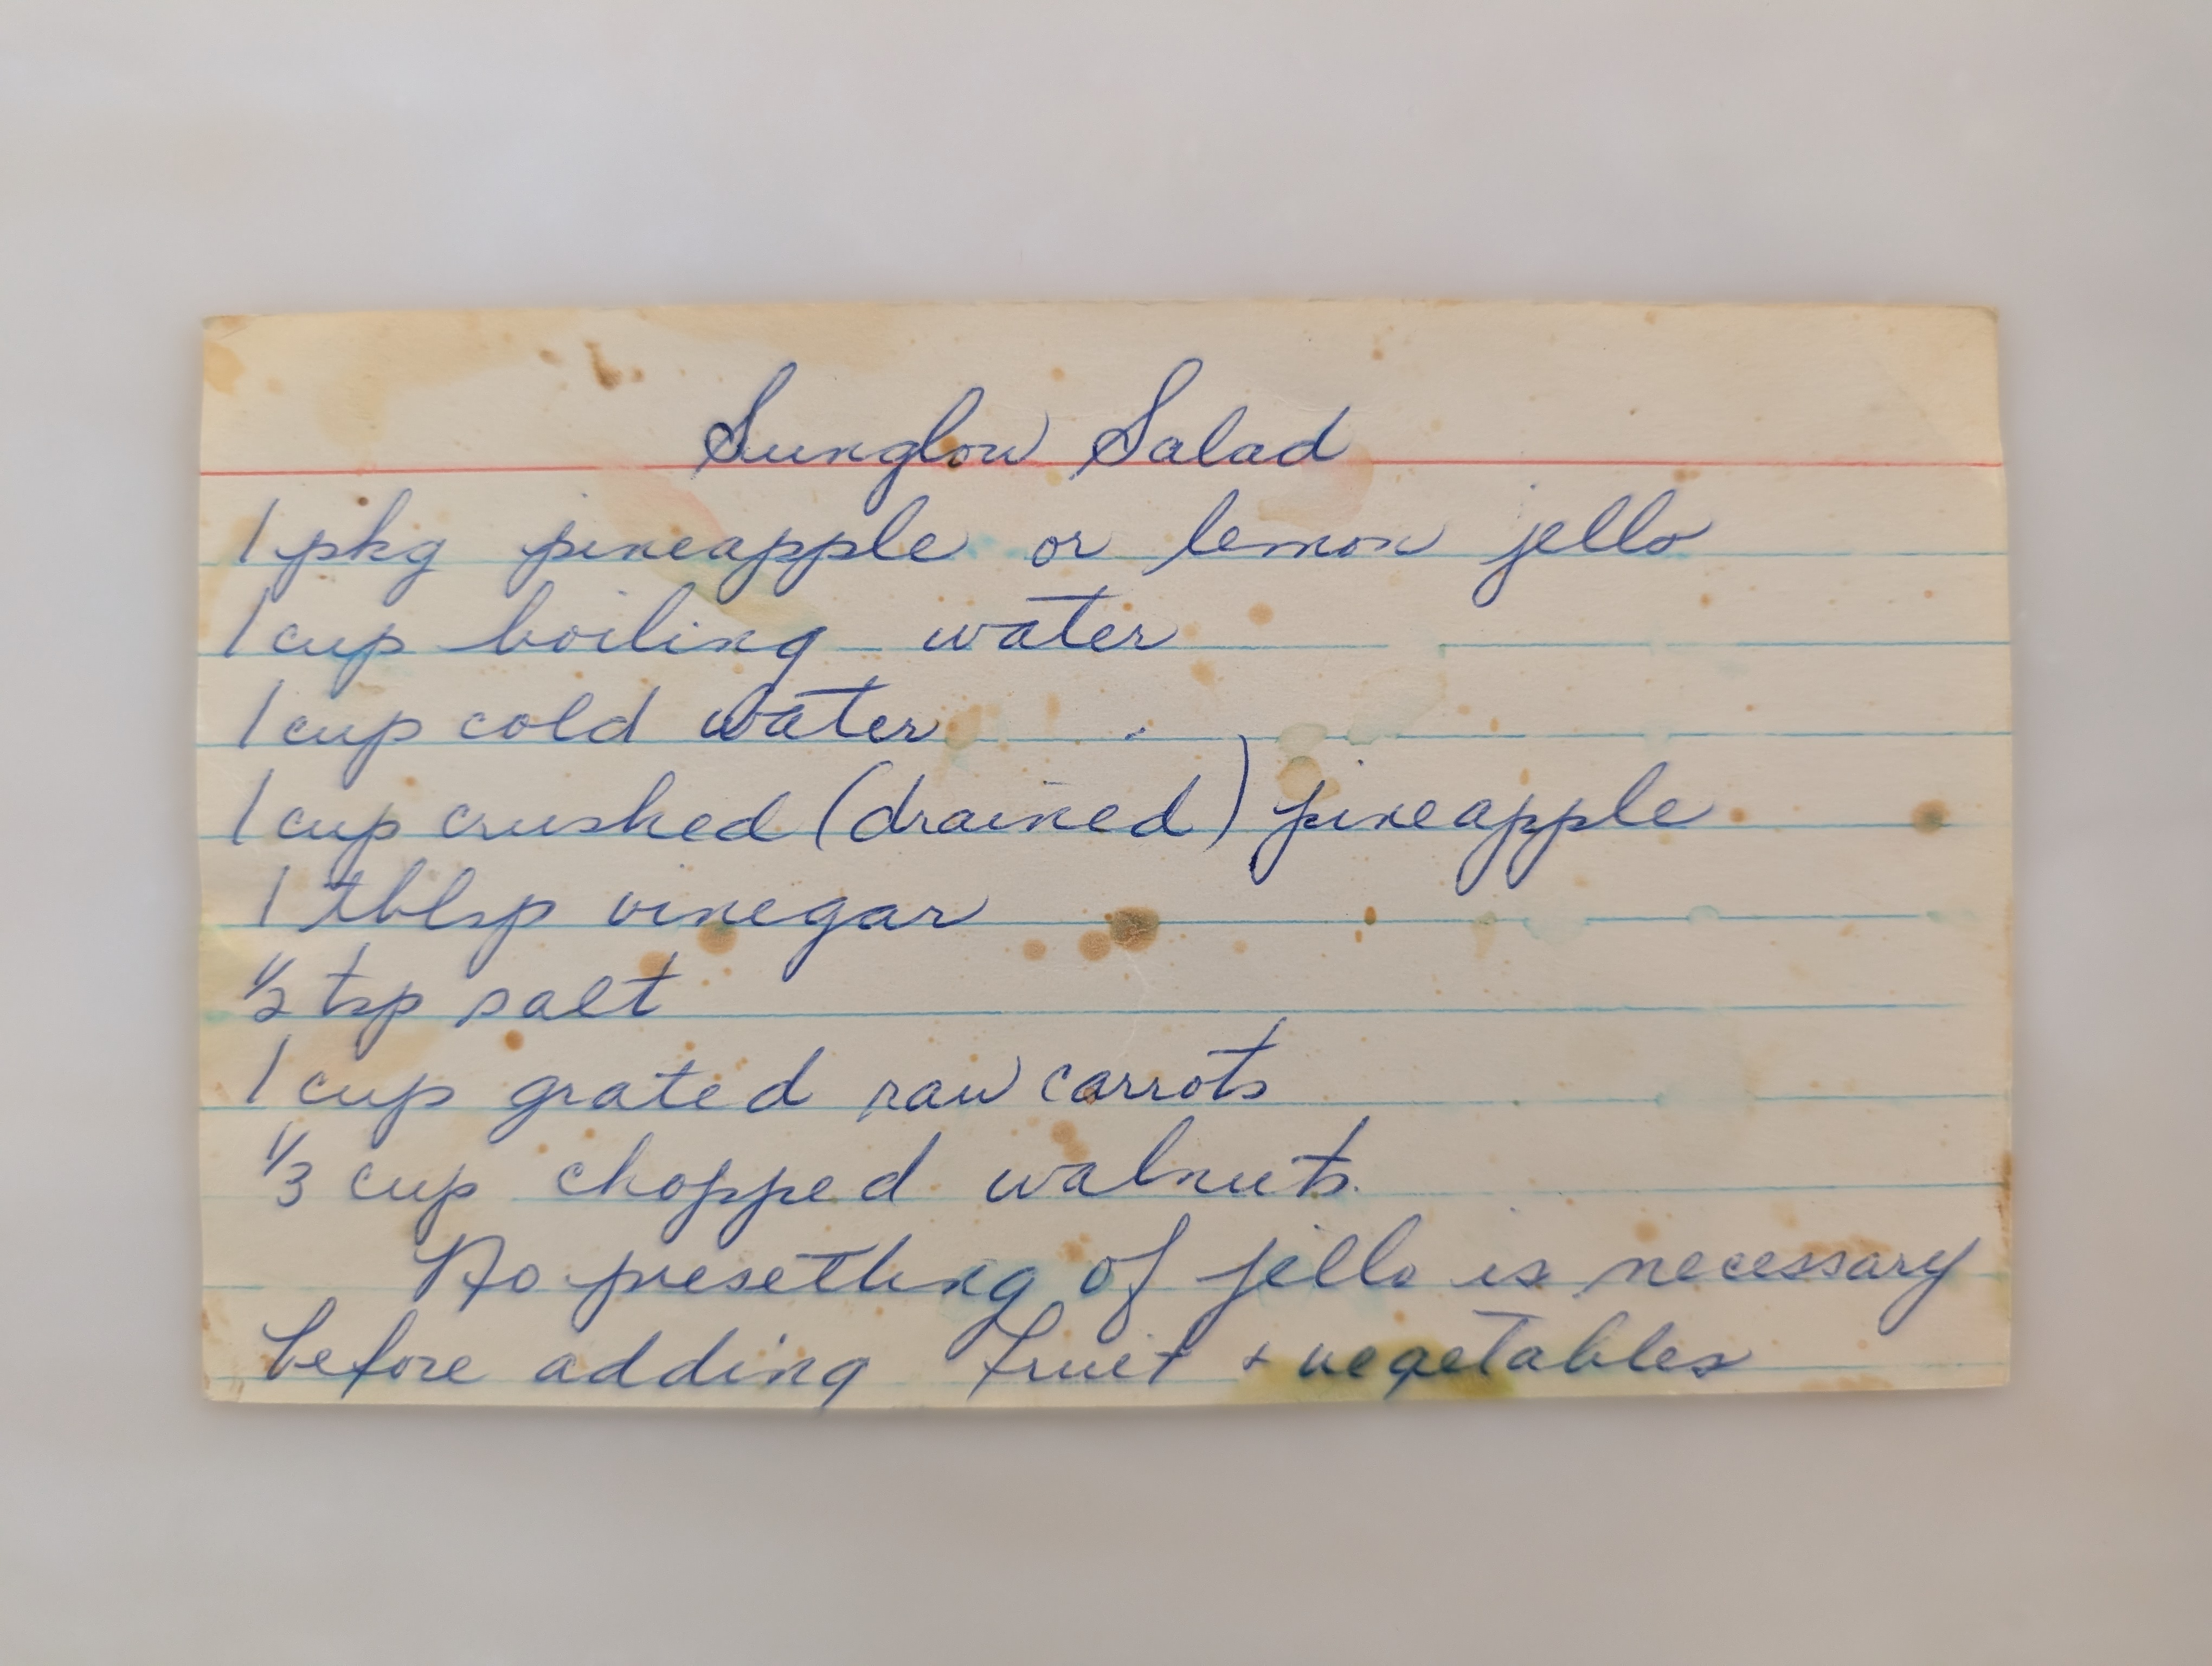 Sunglow Salad
1 pkg pineapple or lemon jello
1 cup boiling water
1 cup cold water
1 cup crushed (drained) pineapple
1 tblsp vinegar
1/2 tsp salt
1 cup grated raw carrots
1/3 cup chopped walnuts.
No presetting of jello is necessary
before adding fruit + vegetables